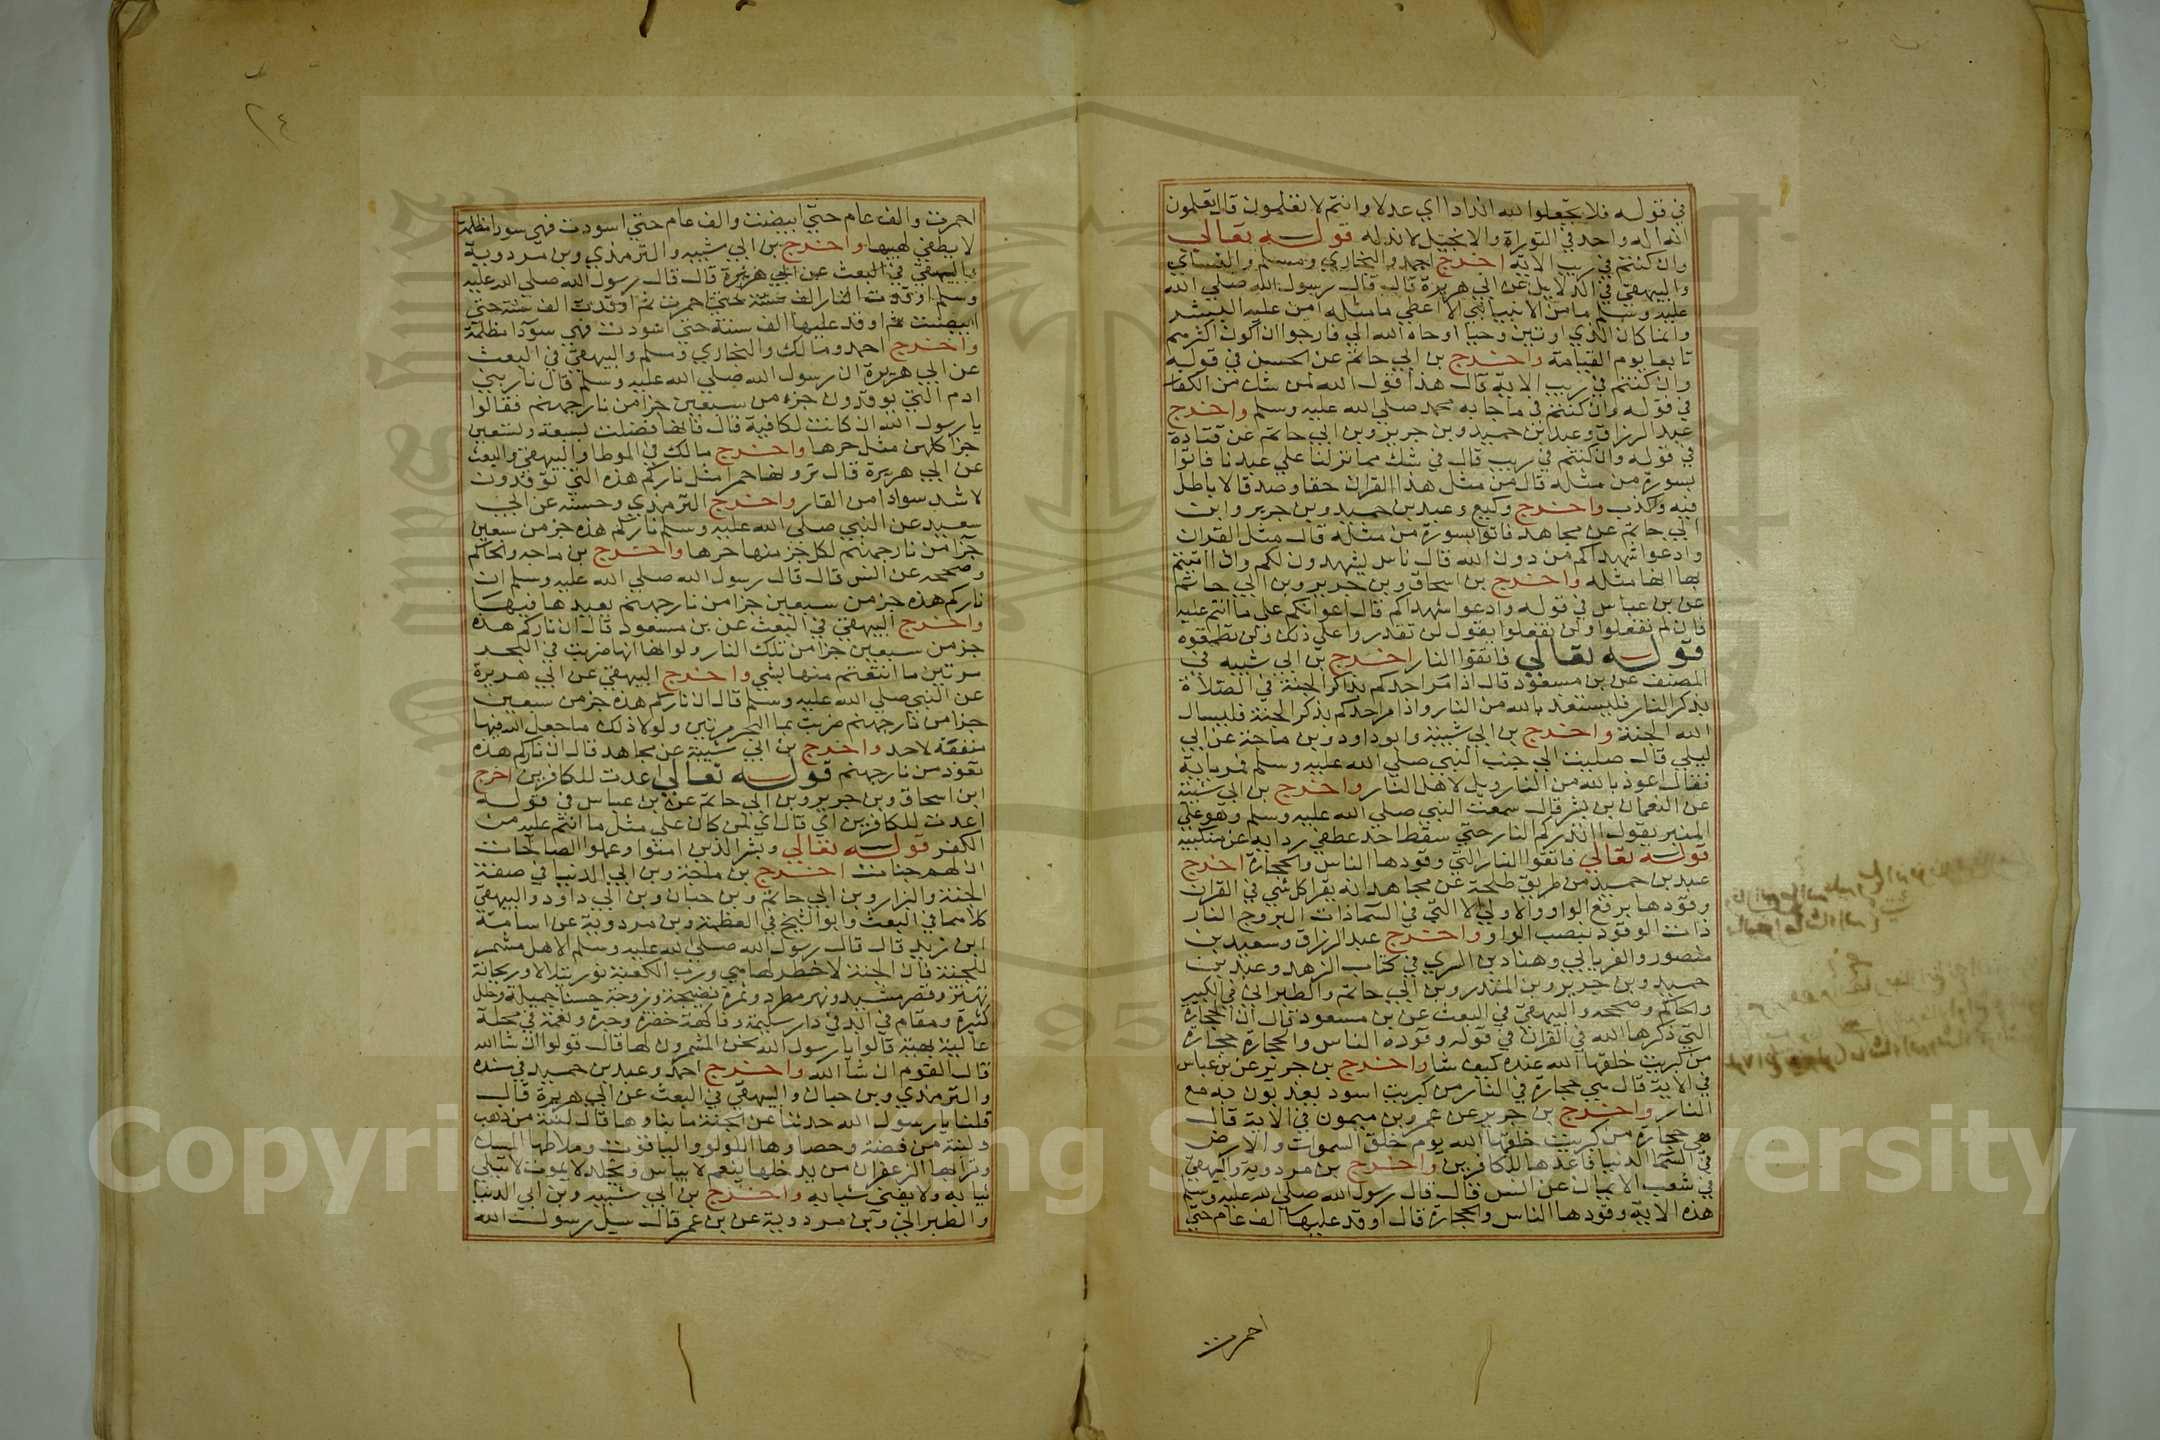 في قوله فلا تجعلوا لله اندادا اي عدلا وانتم لا تعلمون قال تعلمون
انه اله واحد في التوراة والانجيل لا ند له قوله تعالي
وان كنتم في ريب الاية اخرج احمد والبخاري ومسلم والنساي
والبيهقي في الدلايل عن ابي هريرة قال قال رسول الله صلي الله
عليه وسلم ما من الانبيا نبي الا اعطي ما مثله امن عليه البشر
وانما كان الذي اوتيت وحيا اوحاه الله الي فارجوا ان اكون اكثرهم
تابعا يوم القيامة واخرج بن ابي حاتم عن الحسن في قوله
وان كنتم في ريب الاية قال هذا قول الله لمن شك من الكفار
في قوله وان كنتم في ما جا به محمد صلي الله عليه وسلم واخرج
عبد الرزاق وعبد بن حميد وبن جرير وبن ابي حاتم عن قتادة
في قوله وان كنتم في ريب قال في شك مما نزلنا علي عبدنا فاتوا
بسورة من مثله قال من مثل هذا القران حقا وصدقا لا باطل
فيه ولا كذب واخرج وكيع وعبد بن حميد وبن جرير وابن
ابي حاتم عن مجاهد فاتوا بسورة من مثله قال مثل القران
وادعوا شهداكم من دون الله قال ناس يشهدون لكم وان اتيتم
بها انها مثله واخرج بن اسحاق وبن جرير وبن ابي حاتم
عن بن عباس في قوله وادعوا شهداكم قال اعوانكم علي ما انتم عليه
فان لم تفعلوا ولن تفعلوا يقول لن تقدروا علي ذلك ولن تطيقوه
قوله تعالي فاتقوا النار اخرج بن ابي شيبه في
المصنف عن بن مسعود قال اذا مر احدكم بذكر الجنة في الصلاة
بذكر النار فليستعذ بالله من النار واذا مر احدكم بذكر الجنة فليسال
الله الجنة واخرج بن ابي شيبة وابو داود وبن ماجة عن ابي
ليلي قال صليت الي جنب النبي صلي الله عليه وسلم فمر باية
فقال اعوذ بالله من النار ويل لاهل النار واخرج بن ابي شيبة
عن النعمان بن بشر قال سمعت النبي صلي الله عليه وسلم وهو علي
المنبر يقول انذركم النار حتي سقط احد عطفي ردايه عن منكبيه
قوله تعالي فاتقوا النار التي وقودها الناس والحجارة اخرج
عبد بن حميد من طريق طلحة عن مجاهد انه يقرا كل شي في القران
وقودها برفع الواو والاولي الا التي في السما ذات البروج النار
ذات الوقود بنصب الواو واخرج عبد الرزاق وسعيد بن
منصور والفريابي وهناد بن السري في كتاب الزهد وعبد بن
حميد وبن جرير وبن المنذر وبن ابي حاتم والطبراني في الكبير
والحاكم وصححه والبيهقي في البعث عن بن مسعود قال ان الحجارة
التي ذكرها الله في القران في قوله وقودها الناس والحجارة حجارة
من كبريت خلقها الله عنده كيف شا واخرج بن جرير عن بن عباس
في الاية قال هي حجارة في النار من كبريت اسود يعذبون به مع
النار واخرج بن جرير عن عمرو بن ميمون في الاية قال
هي حجارة من كبريت خلقها الله يوم خلق السموات والارض
في السما الدنيا فاعدها للكافرين واخرج بن مردوية والبيهقي
في شعب الايمان عن انس قال قال رسول الله صلي الله عليه وسلم
هذه الاية وقودها الناس والحجارة قال اوقد عليها الف عام حتي
احمرت
٢٤
احمرت والف عام حتي ابيضت والف عام حتي اسودت فهي سودا مظلمة
لا يطفي لهيبها واخرج بن ابي شيبه والترمذي وبن مردوية
والبيهقي في البعث عن ابي هريرة قال قال رسول الله صلي الله عليه
وسلم اوقدت النار الف سنة حتي احمرت ثم اوقدت الف سنة حتي
ابيضت ثم اوقد عليها الف سنة حتي اسودت فهي سودا مظلمة
واخرج احمد ومالك والبخاري ومسلم والبيهقي في البعث
عن ابي هريرة ان رسول الله صلي الله عليه وسلم قال نار بني
ادم التي توقدون جزء من سبعين جزا من نار جهنم فقالوا
يا رسول الله ان كانت لكافية قال فانها فضلت بتسعة وستين
جزا كلهن مثل حرها واخرج مالك في الموطا والبيهقي والبعث
عن ابي هريرة قال ترونها حمرا مثل ناركم هذه التي توقدون
لاشد سوادا من القار واخرج الترمذي وحسنه عن ابي
سعيد عن النبي صلي الله عليه وسلم ناركم هذه جز من سبعين
جزا من نار جهنم لكل جز منها حرها واخرج بن ماجه والحاكم
وصححه عن انس قال قال رسول الله صلي الله عليه وسلم ان
ناركم هذه جز من سبعين جزا من نار جهنم بعيدها فيها
واخرج البيهقي في البعث عن بن مسعود قال ان ناركم هذه
جز من سبعين جزا من تلك النار ولولا انها ضربت في البحر
مرتين ما انتفعتم منها بشي واخرج البيهقي عن ابي هريرة
عن النبي صلي الله عليه وسلم قال ان ناركم هذه جز من سبعين
جزا من نار جهنم ضربت بما البحر مرتين ولولا ذلك ما جعل الله فيها
منفعة لاحد واخرج بن ابي شيبة عن مجاهد قال ان ناركم هذه
تعوذ من نار جهنم قوله تعالي اعدت للكافرين اخرج
ابن اسحاق وبن جرير وبن ابي حاتم عن بن عباس في قوله
اعدت للكافرين اي قال اي لمن كان علي مثل ما انتم عليه من
الكفر قوله تعالي وبشر الذين امنوا وعملوا الصالحات
ان لهم جنات اخرج بن ماجة وبن ابي الدنيا في صفة
الجنة والبزار وبن ابي حاتم وبن حبان وبن ابي داود والبيهقي
كلاهما في البعث وابو الشيخ في العظمة وبن مردوية عن اسامة
ابن زيد قال قال رسول الله صلي الله عليه وسلم الا هل مشمر
للجنة فان الجنة لا خطر لها هي ورب الكعبة نور يتلالا وريحانة
تهتز وقصر مشيد ونهر مطرد وثمرة نضيجة وزوجة حسنا جميلة وحلل
كثيرة ومقام في ابد في دار سليمة وفاكهة خضرة وحبرة ونعمة في محلة
عالية بهية قالوا يا رسول الله نحن المشمرون لها قال قولوا ان شا الله
قال القوم ان شا الله واخرج احمد وعبد بن حميد في سنده
والترمذي وبن حبان والبيهقي في البعث عن ابي هريرة قال
قلنا يا رسول الله حدثنا عن الجنة ما بناوها قال لبنة من ذهب
ولبنة من فضة وحصاوها اللولو والياقوت وملاطها المسك
وترابها الزعفران من يدخلها ينعم لا يباس ويخلد لا يموت لا تبلي
ثيابه ولا يفني شبابه واخرج بن ابي شيبه وبن ابي الدنيا
والطبراني وبن مردوية عن بن عمر قال سيل رسول الله
Copyright King Saud University